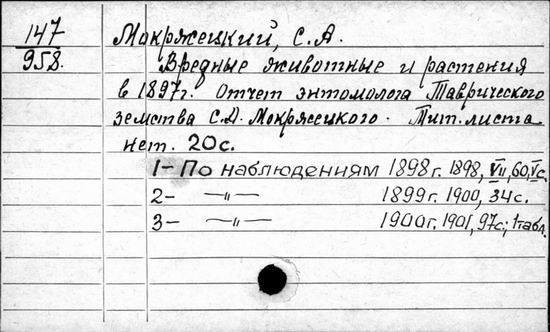 147
958.
Мокржецкий, С.А.
Вредные животные и растения
в 1897г. Отчет энтомолога Таврического
земства С.А. Мокржецкого. Тит. листа
нет. 20с.
1- По наблюдениям 1898г. 1898, VII, 60, V с.
2- —"— 1899г. 1900, 34с.
3- —"— 1900г. 1901, 97с; 1 табл.